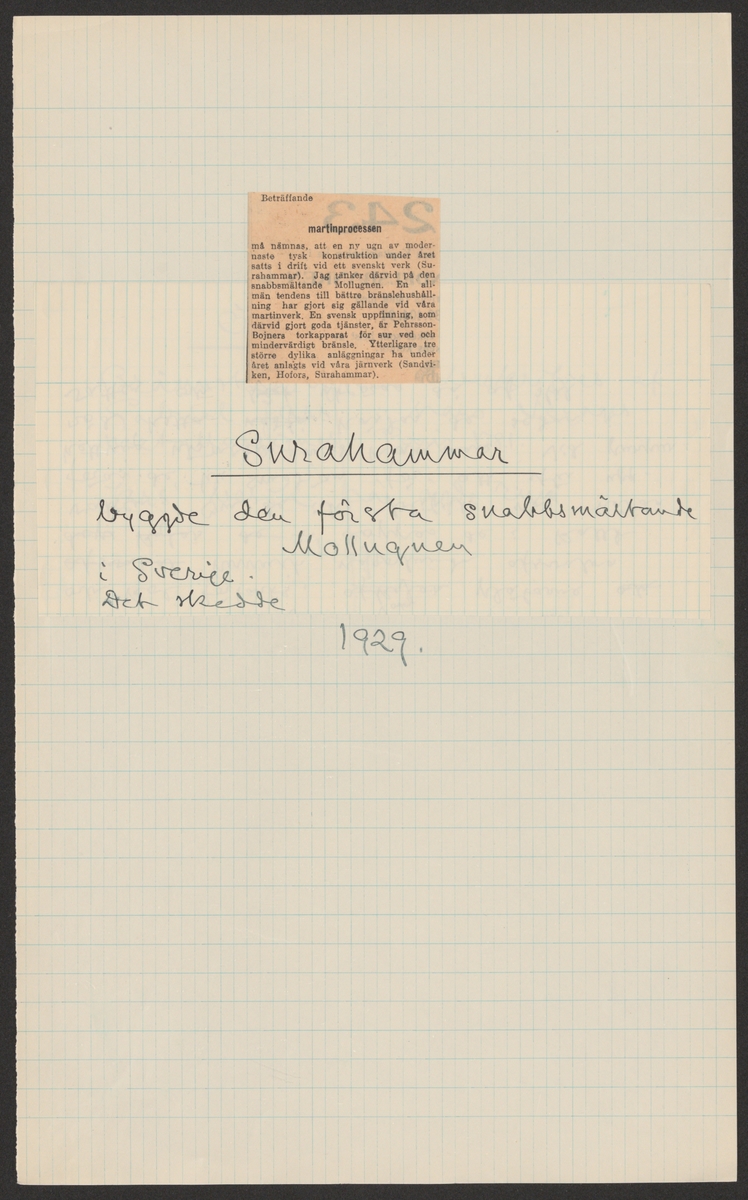 Beträffande
martinprocessen
må nämnas, att en ny ugn av moder-
naste tysk konstruktion under året
satts i drift vid ett svenskt verk (Su-
rahammar). Jag tänker därvid på den
snabbsmältande Mollugnen. En all-
män tendens till bättre bränslehushåll-
ning har gjort sig gällande vid våra
martinverk. En svensk uppfinning, som
därvid gjort goda tjänster, är Pehrsson-
Bojners torkapparat för sur ved och
mindervärdigt bränsle. Ytterligare tre
större dylika anläggningar ha under
året anlagts vid våra järnverk (Sandvi-
ken, Hofors, Surahammar).
Surahammar
byggde den första snabbsmältande
Mollugnen
i Sverige.
Det skedde
1929.